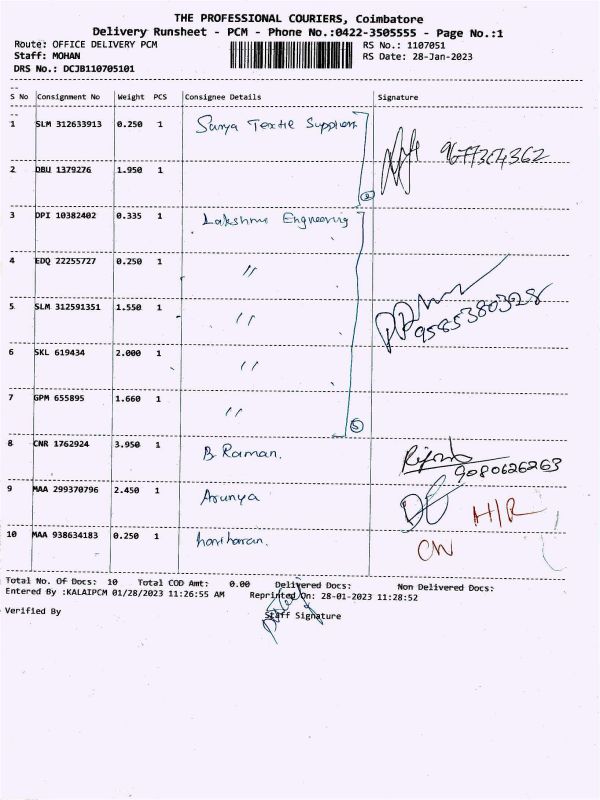 THE PROFESSIONAL COURIERS, Coimbatore
Delivery Runsheet - PCM - Phone No.:0422-3505555 - Page No.:1
Route: OFFICE DELIVERY PCM RS No.: 1107051
Staff: MOHAN RS Date: 28-Jan-2023
DRS No.: DCJB110705101
S No Consignment No Weight PCS Consignee Details Signature
1 SLM 312633913 0.250 1 Surya Textile Suppliers
9677364362
2 DBU 1379276 1.950 1
2
3 DPI 10382402 0.335 1 Lakshmi Engineering
4 EDQ 22255727 0.250 1 "
5 SLM 312591351 1.550 1 "
9585380328
6 SKL 619434 2.000 1 "
7 GPM 655895 1.660 1 "
5
8 CNR 1762924 3.950 1 B. Raman.
9080626263
9 MAA 299370796 2.450 1 Arunya
H/R
10 MAA 938634183 0.250 1 hariharan.
CN
Total No. Of Docs: 10 Total COD Amt: 0.00 Delivered Docs: Non Delivered Docs:
Entered By :KALAIPCM 01/28/2023 11:26:55 AM Reprinted On: 28-01-2023 11:28:52
Verified By Staff Signature